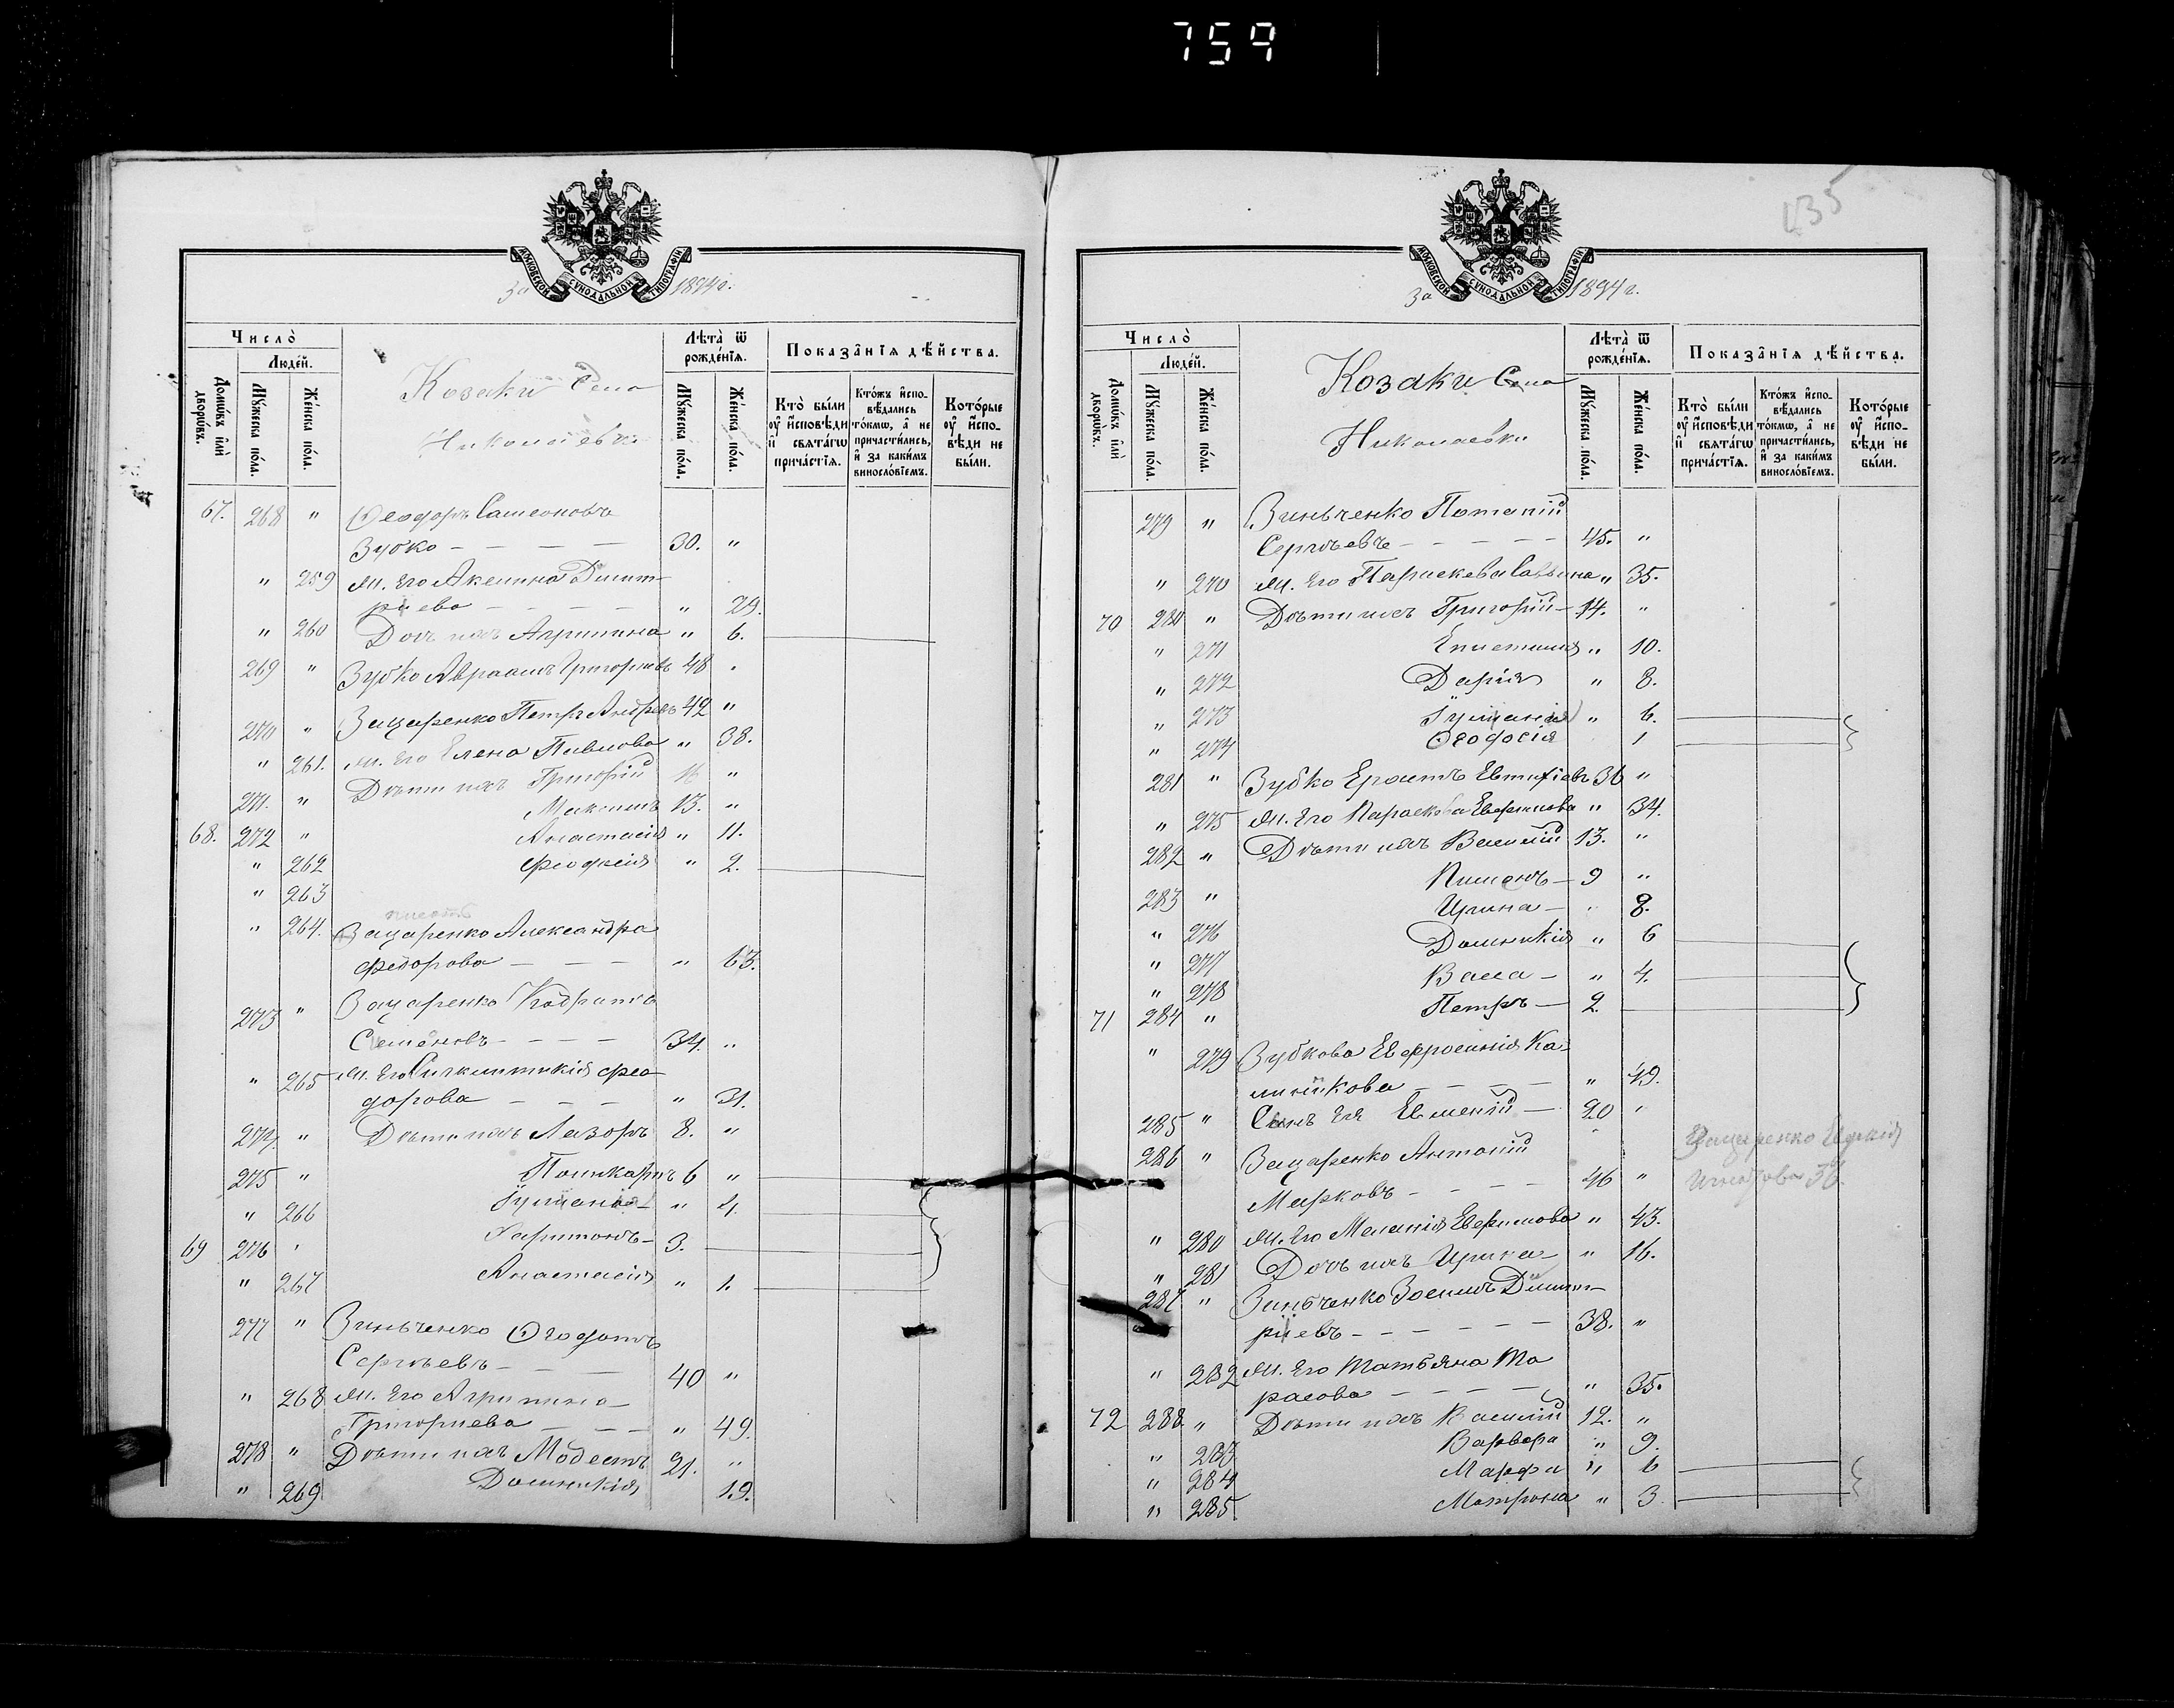 759
435
МОСКОВСКОЙ СУНОДАЛЬНОЙ ТИПОГРАФІИ
За 1894 г.
Число̀
Людей.
Домѡвъ или дворѡвъ.
Мꙋжеска пола.
Женска пола.
Козаки Села
Николаевки
Лѣта ѿ рожденїѧ.
Мꙋжеска пола.
Женска пола.
Показанїѧ дѣйства.
Кто были ᲂу исповѣди и свѧтагѡ причастїѧ.
Ктожъ исповѣдались токмѡ, а не причастились, и за какимъ винословїемъ.
Которые ᲂу исповѣди не были.
67. 268 " Ѳеодоръ Самсоновъ
Зубко – – – – 30. "
" 259 Ж. его Акелина Димит-
ріева – – – – " 29.
" 260 Дочь ихъ Агрипина " 6.
269 " Зубко Авраамъ Григорьевъ 48 "
270 " Зацаренко Петръ Андреевъ 42 "
" 261. Ж. его Елена Павлова " 38.
271. " Дѣти ихъ Григорій 16 "
Максимъ 13. "
68. 272 " Анастасія " 11.
" 262 Феодосія " 2.
" 263
" 264. Зацаренко Александра
Федорова – – – " 63.
273 " Зацаренко Кодратъ
Семеновъ – – – – 34. "
" 265 Ж. его Сигклитикія Фео-
дорова – – – " 31.
274. " Дѣти ихъ Лазорь 8. "
275 " Поликарпъ 6 "
" 266 Іуліанія – " 4.
69 276 " Харитонъ – 3.
" 267 Анастасія " 1.
277 " Зинченко Ѳеодотъ
Сергѣевъ – – – 40 "
" 268 Ж. его Агрипина
Григорьева – – – " 49.
278 " Дѣти ихъ Модестъ 21. "
" 269 Домникія 19.
МОСКОВСКОЙ СУНОДАЛЬНОЙ ТИПОГРАФІИ
За 1894 г.
Число̀
Людей.
Домѡвъ или дворѡвъ.
Мꙋжеска пола.
Женска пола.
Козаки Села
Николаевки
Лѣта ѿ рожденїѧ.
Мꙋжеска пола.
Женска пола.
Показанїѧ дѣйства.
Кто были ᲂу исповѣди и свѧтагѡ причастїѧ.
Ктожъ исповѣдались токмѡ, а не причастились, и за какимъ винословїемъ.
Которые ᲂу исповѣди не были.
279 " Зиньченко Потапій
Сергѣевъ – – – – – 45. "
" 270 Ж. его Параскева Саввина " 35.
70 280 " Дѣти ихъ Григорій – 14. "
" 271 Епистимія " 10.
" 272 Дарія " 8.
" 273 Іуліанія " 6.
" 274 Ѳеодосія 1
281 " Зубко Ерастъ Евтихіевъ 36 "
" 275 Ж. его Параскева Евфимова " 34.
282 " Дѣти ихъ Василій 13. "
Пименъ – 9 "
283 " Ирина – " 8.
" 276 Домникія " 6
" 277 Васса – " 4.
" 278 Петръ – 2.
71 284 "
" 279 Зубкова Евфросинія Ка-
линикова – – – – " 49.
285 " Сынъ ея Евмений – 20 "
286 " Зацаренко Антоній
Марковъ – – – – 46 "
Зацаренко Евдокія
38.
" 280 Ж. его Меланія Евфимова " 43.
" 281 Дочь ихъ Ирина – " 16.
287 " Зиньченко Зосимъ Димит-
ріевъ – – – – – – 38. "
" 282 Ж. его Татьяна Та
расова – – – – " 35.
72 288. " Дѣти ихъ Василій 12. "
" 283 Варвара " 9.
" 284 Марфа " 6
" 285 Матрона " 3.